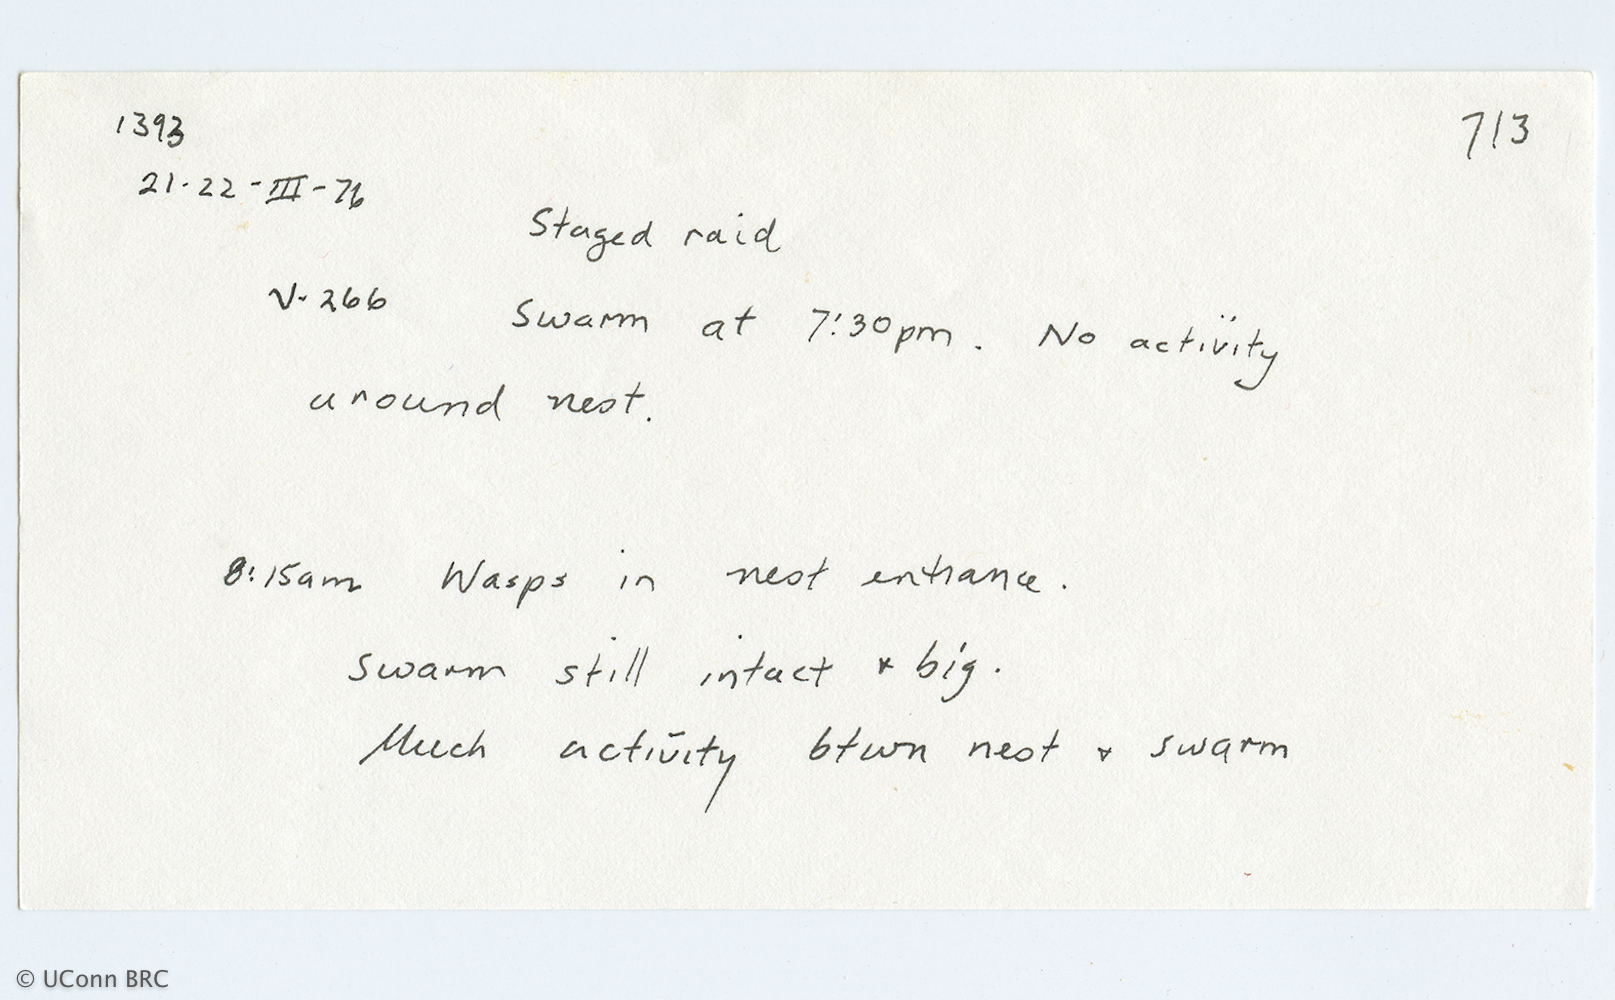 1393
713
21-22-III-76
Staged raid
V-266 Swarm at 7:30pm. No activity
around nest.
8:15am Wasps in nest entrance.
Swarm still intact & big.
Much activity btwn nest & swarm
© UConn BRC